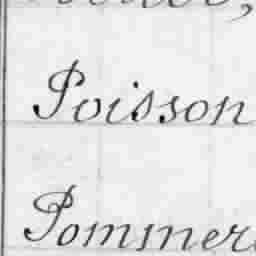 Poisson
Pommer